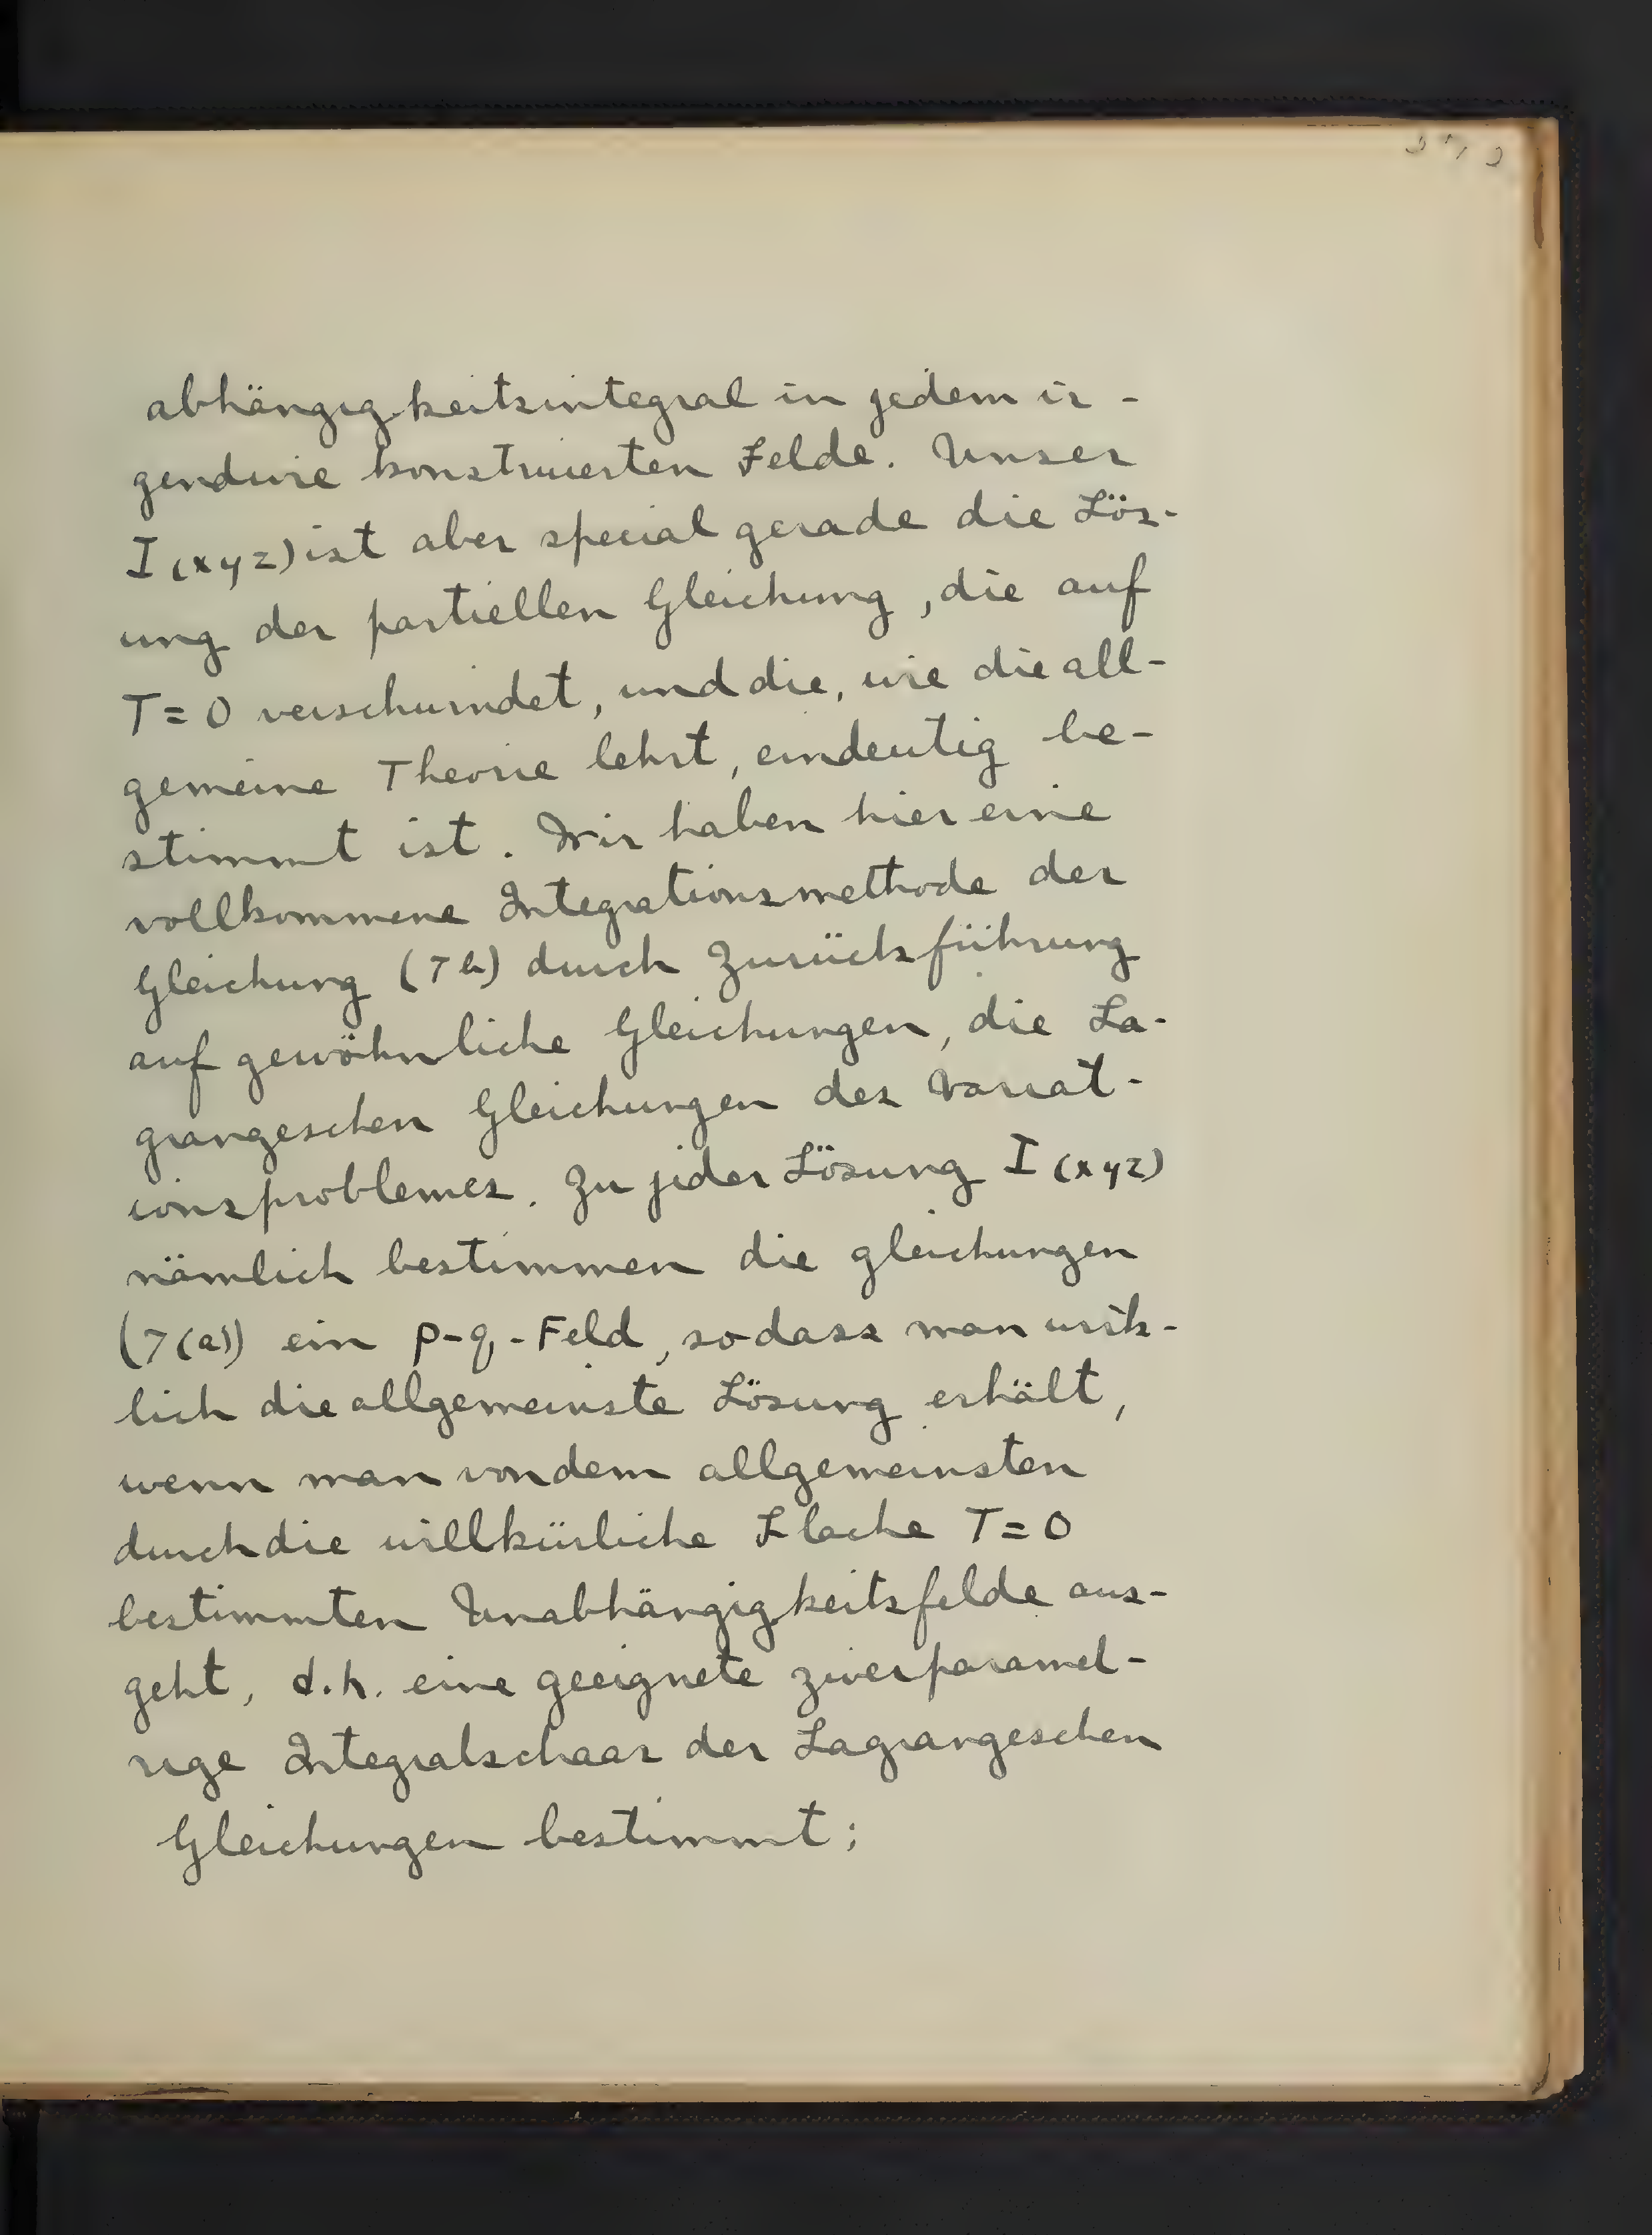 abhängigkeitsintegral in jedem ir-
gendwie konstruierten Felde. Unser
I(xyz) ist aber special gerade die Lös-
ung der partiellen Gleichung, die auf
T=0 verschwindet, und die, wie die all-
gemeine Theorie lehrt, eindeutig be-
stimmt ist. Wir haben hier eine
vollkommene Integrationsmethode der
Gleichung (7b) durch Zurückführung
auf gewöhnliche Gleichungen, die La-
grangeschen Gleichungen des Variat-
ionsproblemes. Zu jeder Lösung I(xyz)
nämlich bestimmen die gleichungen
(7(a)) ein p-q-Feld, sodass man wirk-
lich die allgemeinste Lösung erhält,
wenn man von dem allgemeinsten
durch die willkürliche Flache T=0
bestimmten Unabhängigkeitsfelde aus-
geht, d.h. eine geeignete zweiparamet-
rige Integralschaar der Lagrangeschen
Gleichungen bestimmt;